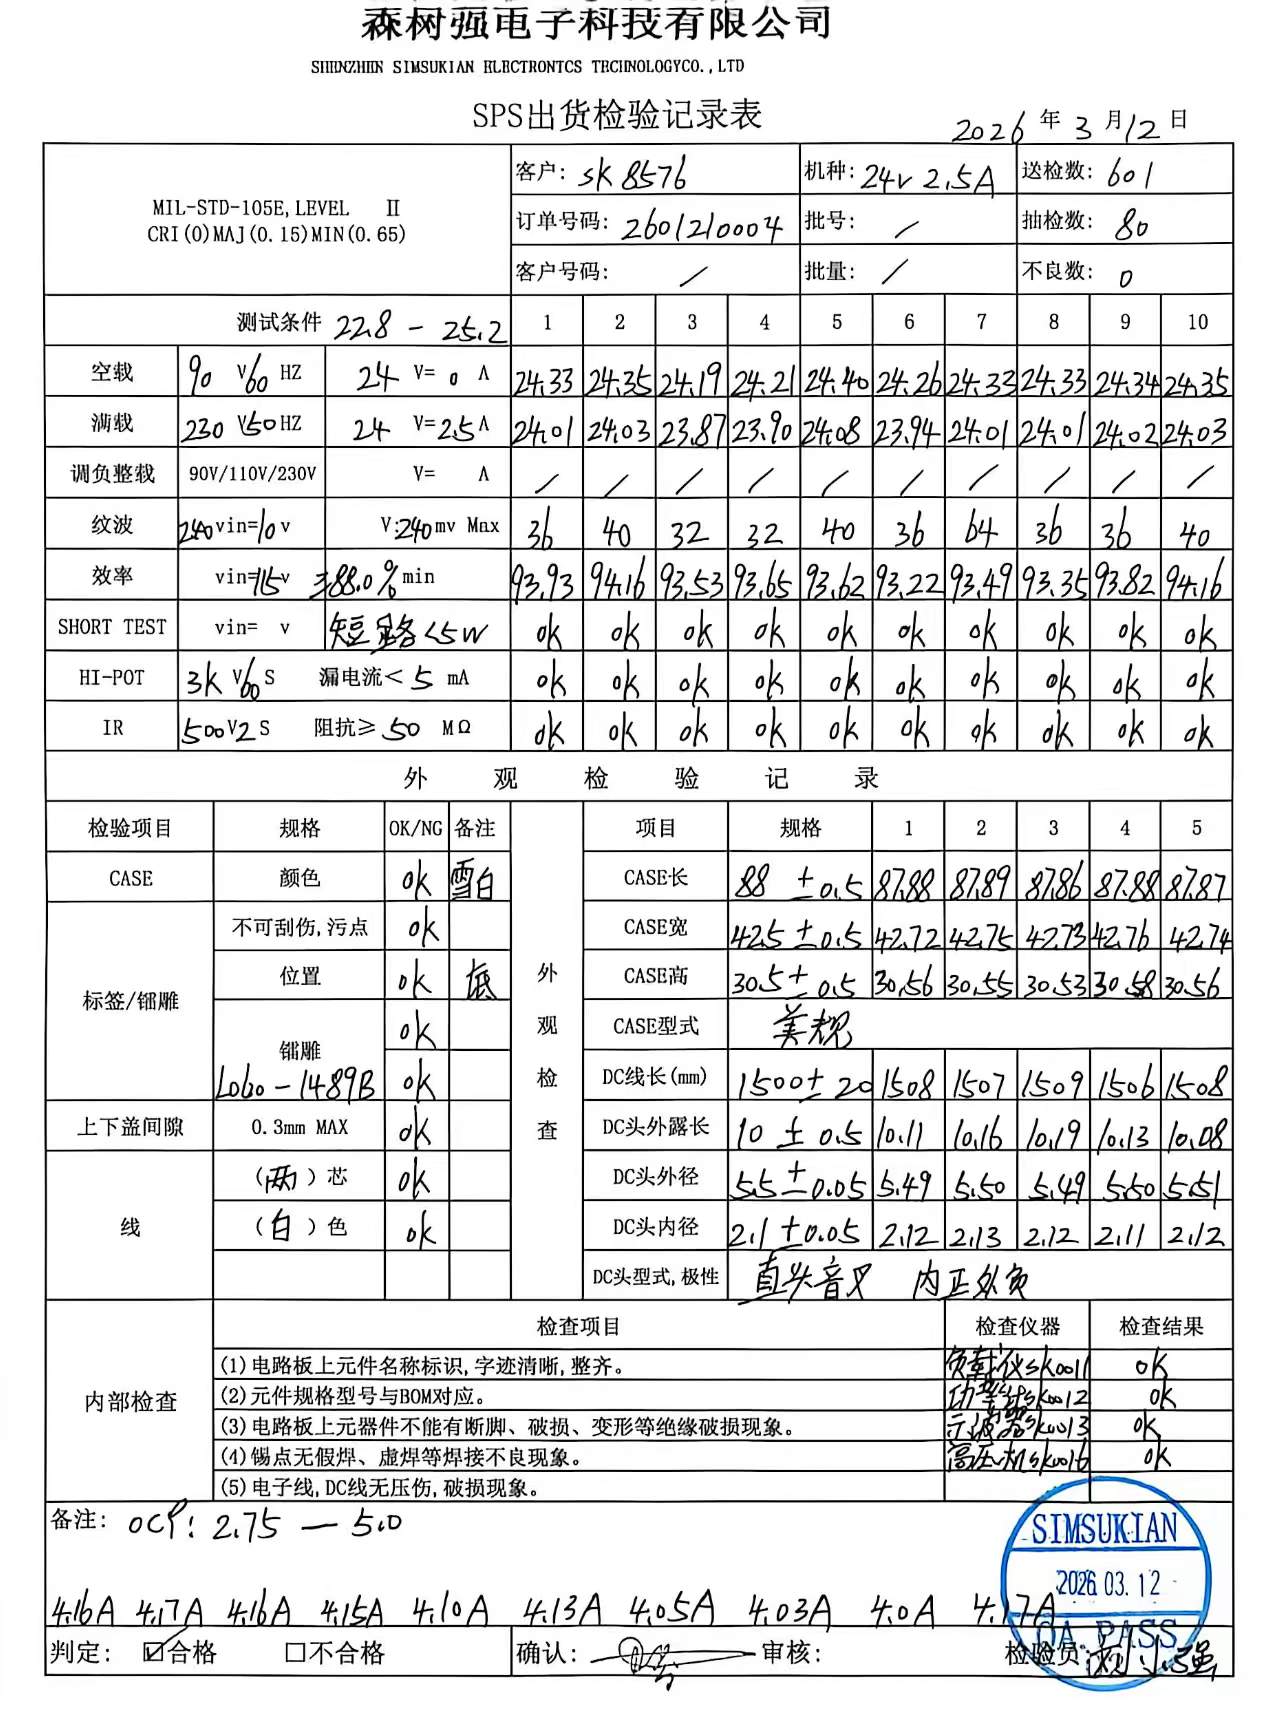 森树强电子科技有限公司
SHENZHEN SIMSUKIAN ELECTRONTCS TECHNOLOGYCO.,LTD
SPS出货检验记录表
2026 年 3 月 12 日
MIL-STD-105E,LEVEL Ⅱ
CRI(0)MAJ(0.15)MIN(0.65)
客户: SK 8576 机种: 24V 2.5A 送检数: 601
订单号码: 2601210004 批号: / 抽检数: 80
客户号码: / 批量: / 不良数: 0
测试条件 22.8 - 25.2 1 2 3 4 5 6 7 8 9 10
空载 90 V 60 HZ 24 V= 0 A 24.33 24.35 24.19 24.21 24.40 24.26 24.33 24.33 24.34 24.35
满载 230 V 50 HZ 24 V= 2.5 A 24.01 24.03 23.87 23.90 24.08 23.94 24.01 24.01 24.02 24.03
调负整载 90V/110V/230V V= A / / / / / / / / / /
纹波 240 vin= 10 v V: 240 mv Max 36 40 32 32 40 36 64 36 36 40
效率 vin= 115 v ≥88.0% min 93.93 94.16 93.53 93.65 93.62 93.22 93.49 93.35 93.82 94.16
SHORT TEST vin= v 短路<5W ok ok ok ok ok ok ok ok ok ok
HI-POT 3K V 60 S 漏电流< 5 mA ok ok ok ok ok ok ok ok ok ok
IR 500 V 2 S 阻抗≥ 50 MΩ ok ok ok ok ok ok ok ok ok ok
外观检验记录
检验项目 规格 OK/NG 备注 项目 规格 1 2 3 4 5
CASE 颜色 ok 雪白 CASE长 88 ±0.5 87.88 87.89 87.86 87.88 87.87
不可刮伤,污点 ok CASE宽 42.5 ±0.5 42.72 42.75 42.73 42.76 42.74
标签/镭雕 位置 ok 底 外观检查 CASE高 30.5 ±0.5 30.56 30.55 30.53 30.58 30.56
ok CASE型式 美规
镭雕 Lobo-1489B ok DC线长(mm) 1500±20 1508 1507 1509 1506 1508
上下盖间隙 0.3mm MAX ok DC头外露长 10 ±0.5 10.11 10.16 10.19 10.13 10.08
(两)芯 ok DC头外径 5.5 ±0.05 5.49 5.50 5.49 5.50 5.51
线 (白)色 ok DC头内径 2.1 ±0.05 2.12 2.13 2.12 2.11 2.12
DC头型式,极性 直头音叉 内正外负
内部检查 检查项目 检查仪器 检查结果
(1)电路板上元件名称标识,字迹清晰,整齐。 负载仪SK0011 ok
(2)元件规格型号与BOM对应。 SK0012 ok
(3)电路板上元器件不能有断脚、破损、变形等绝缘破损现象。 示波器SK0013 ok
(4)锡点无假焊、虚焊等焊接不良现象。 高压机SK0016 ok
(5)电子线,DC线无压伤,破损现象。
备注: OCP: 2.75 — 5.0
4.16A 4.17A 4.16A 4.15A 4.10A 4.13A 4.05A 4.03A 4.0A 4.17A
SIMSUKIAN
2026.03.12
QA PASS
判定: ☑合格 □不合格 确认: 审核: 检验员: 刘小强